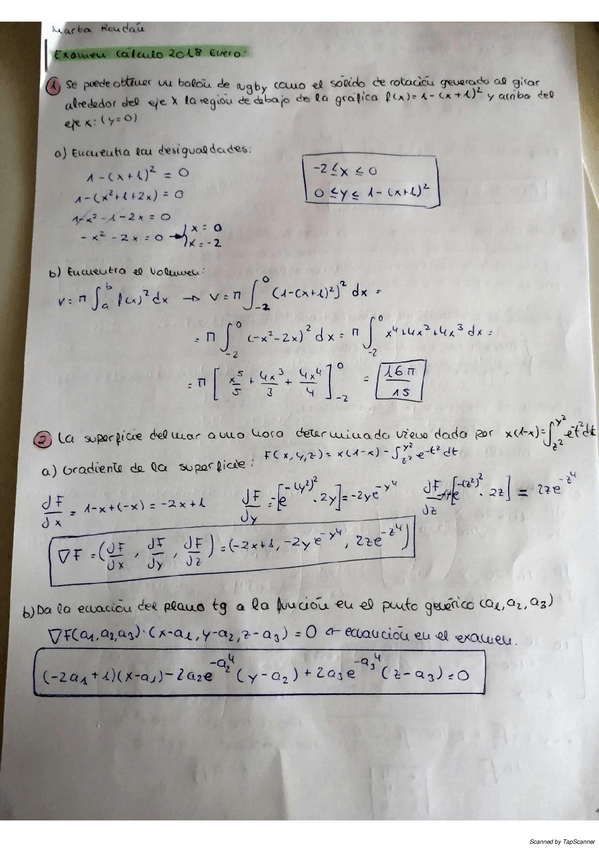 Marta Rendán
Examen Cálculo 2018 Enero:
① Se puede obtener un balón de rugby como el sólido de rotación generado al girar
alrededor del eje X la región de debajo de la gráfica f(x)=1-(x+1)² y arriba del
eje x: (y=0)
a) Encuentra las desigualdades:
1-(x+1)² = 0
1-(x²+1+2x) = 0
1-x²-1-2x = 0
-x²-2x = 0 → x = 0
x = -2
-2 ≤ x ≤ 0
0 ≤ y ≤ 1-(x+1)²
b) Encuentra el volumen:
V = π ∫_a^b f(x)² dx → V = π ∫_{-2}^0 (1-(x+1)²)² dx =
= π ∫_{-2}^0 (-x²-2x)² dx = π ∫_{-2}^0 x⁴+4x²+4x³ dx =
= π [x⁵/5 + 4x³/3 + 4x⁴/4]_{-2}^0 = 16π/15
② La superficie del mar a una hora determinada viene dada por x(1-x) = ∫_{z²}^{y²} e^{-t²} dt
F(x,y,z) = x(1-x) - ∫_{z²}^{y²} e^{-t²} dt
a) Gradiente de la superficie:
dF/dx = 1-x+(-x) = -2x+1 dF/dy = -[e^{-(y²)²} · 2y] = -2ye^{-y⁴} dF/dz = [e^{-(z²)²} · 2z] = 2ze^{-z⁴}
∇F = (dF/dx, dF/dy, dF/dz) = (-2x+1, -2ye^{-y⁴}, 2ze^{-z⁴})
b) Da la ecuación del plano tg a la función en el punto genérico (a1, a2, a3)
∇F(a1,a2,a3)·(x-a1, y-a2, z-a3) = 0 ecuación en el examen.
(-2a1+1)(x-a1) - 2a2e^{-a2⁴}(y-a2) + 2a3e^{-a3⁴}(z-a3) = 0
Scanned by TapScanner